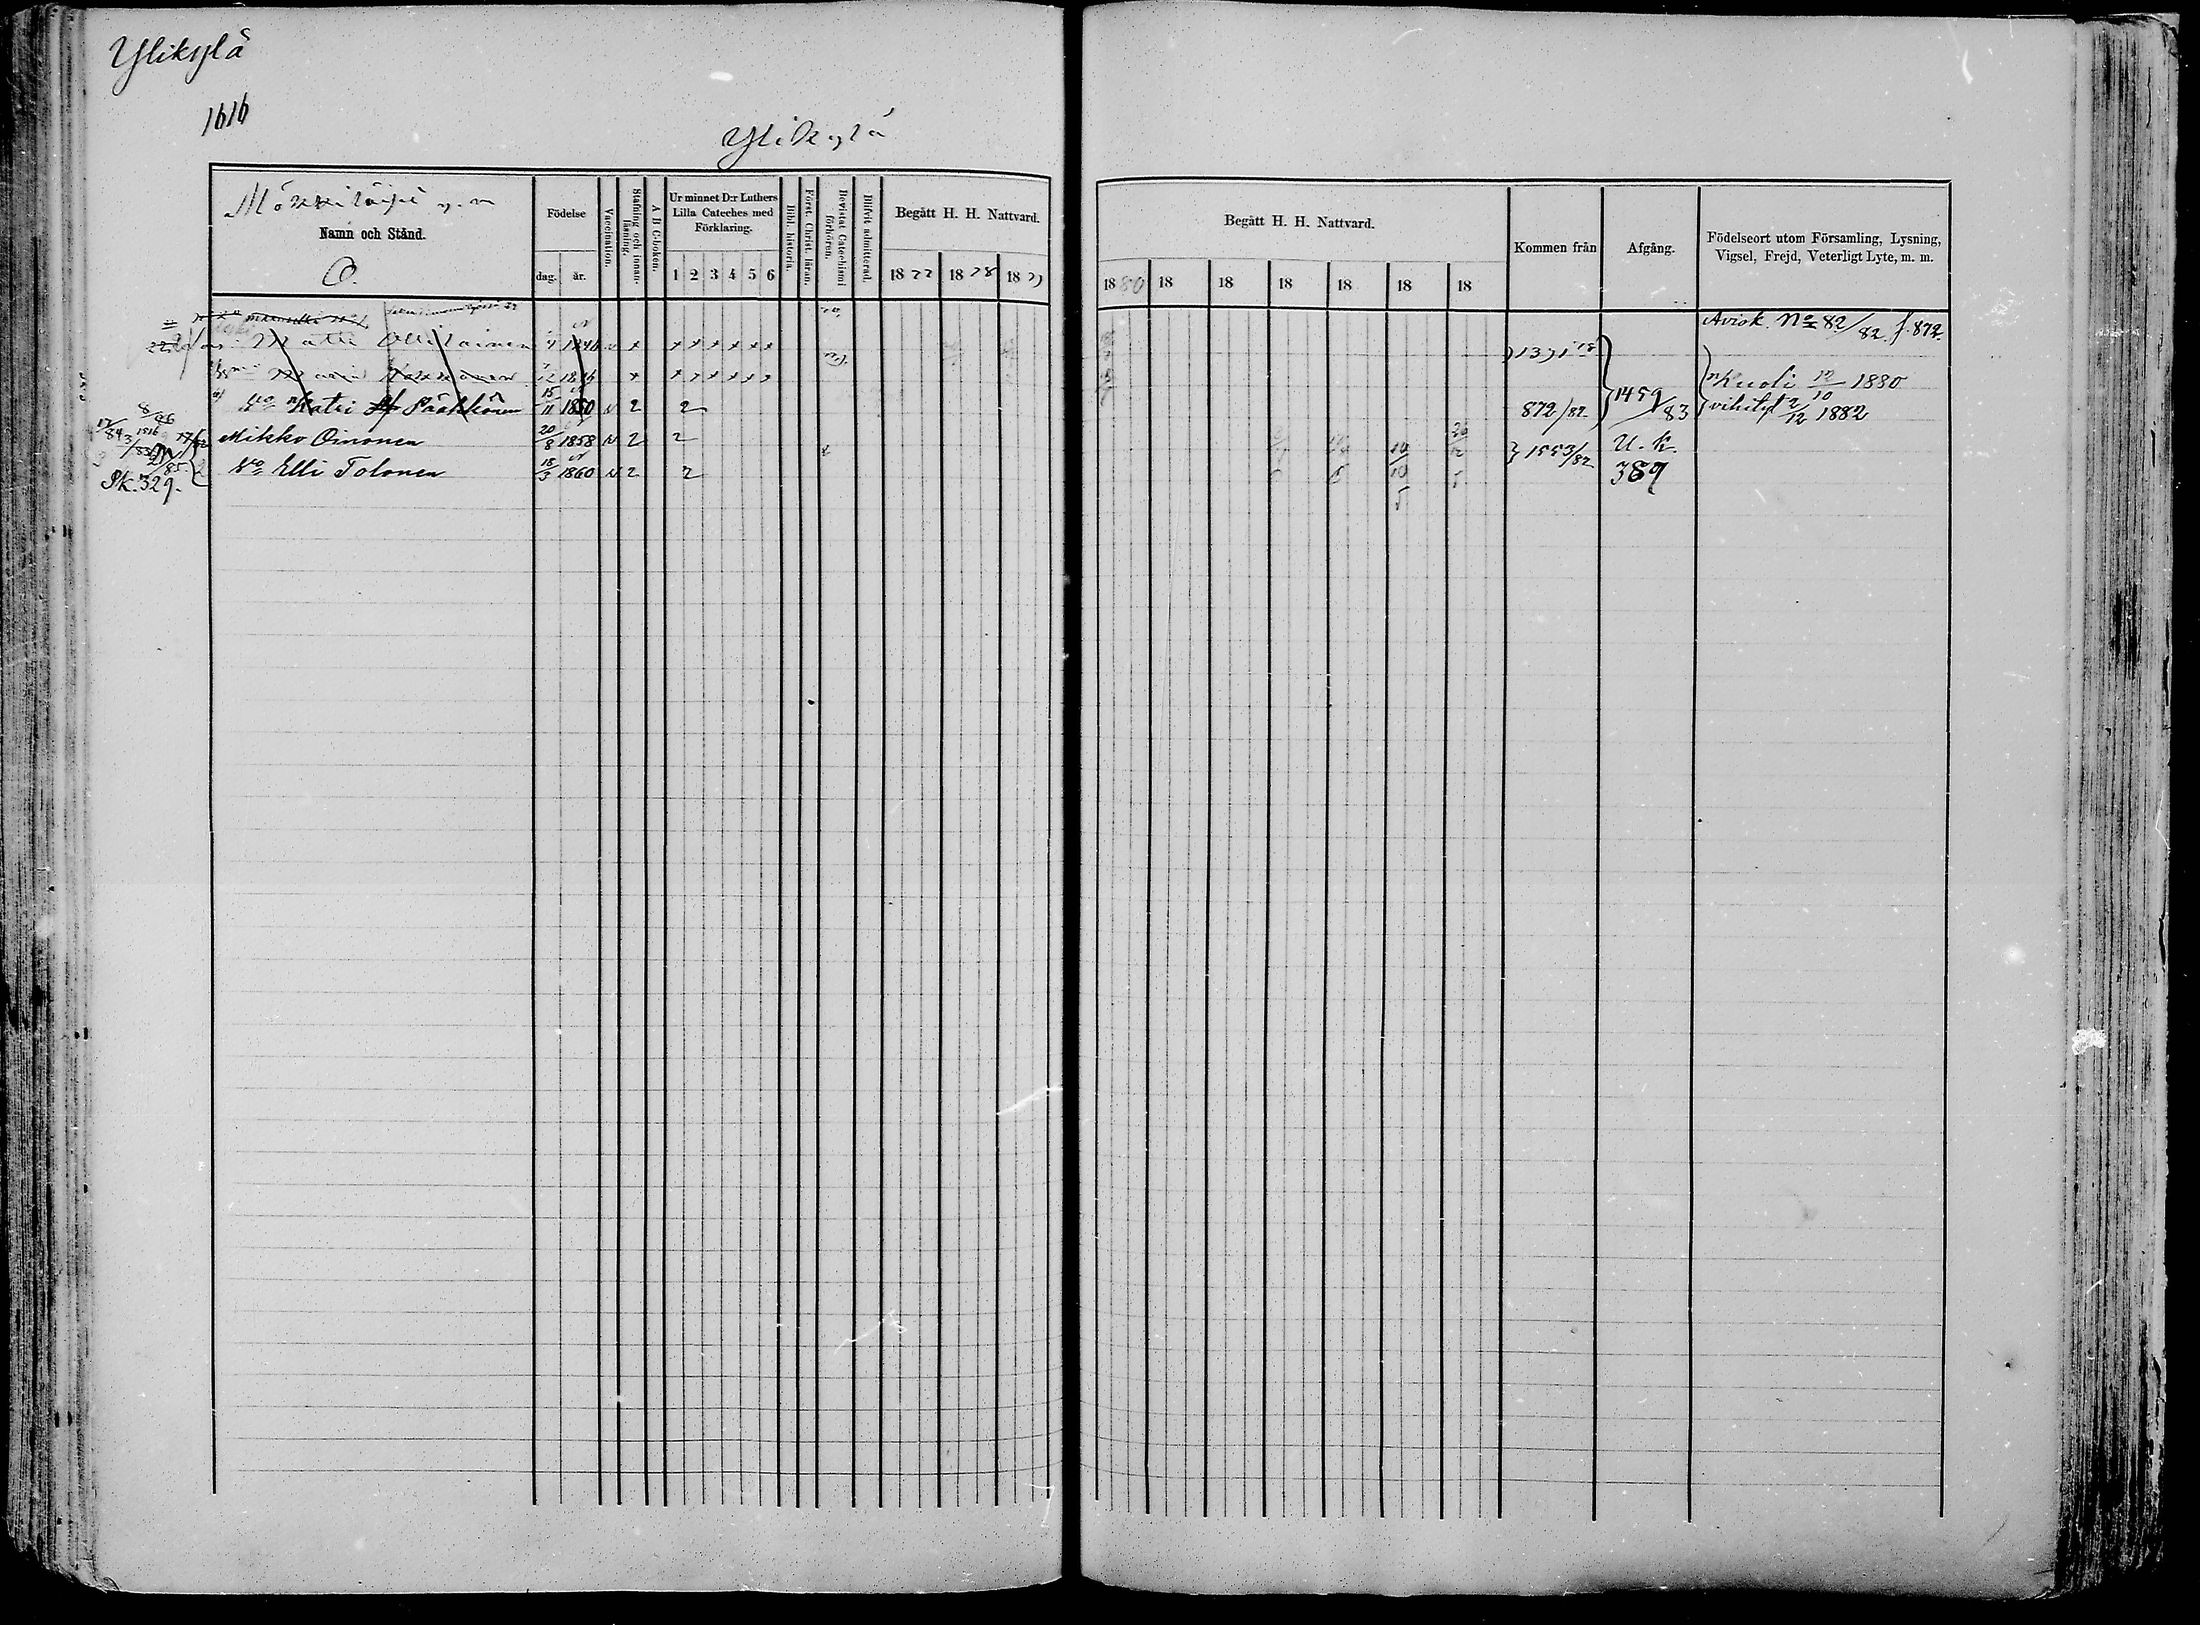 Ylikylä
1616
Ylikylä
Namn och Stånd.
O.
Födelse
dag. år.
Vaccination.
Stafning och innanläsning.
A B C-boken.
Ur minnet D:r Luthers Lilla Cateches med Förklaring.
1 2 3 4 5 6
Bibl. historia.
Först. Christ. läran.
Bevistat Catechismi förhören.
Blifvit admitterad.
Begått H. H. Nattvard.
1877 1878 1879
Begått H. H. Nattvard.
1880 18 18 18 18 18 18
Kommen från
Afgång.
Födelseort utom Församling, Lysning, Vigsel, Frejd, Veterligt Lyte, m. m.
Aviok. No 82/82 f. 872.
Matti Ollikainen 1846 x x x x x x x
1846 x x x x x x x
Kuoli 12/10 1880
Katri Pääkkönen 15/11 1850 2 2 872/82 1459/83 vihityt 2/12 1882
Mikko Oinonen 20/8 1858 2 2 1553/82 U. K.
Vo Elli Tolonen 18/3 1860 2 2 389
Sk. 329.